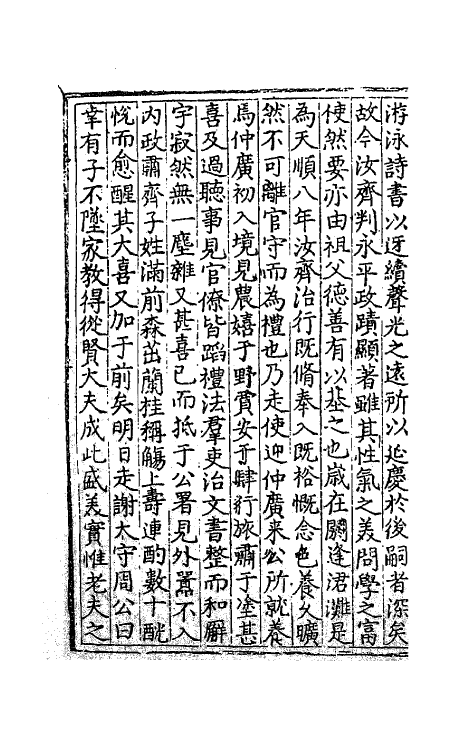 游泳詩書以迓續聲光之遠所以延慶於後嗣者深矣
故今汝齊判永平政蹟顯著雖其性氣之美問學之富
使然要亦由祖父德善有以基之也歲在閼逢涒灘是
為天順八年汝齊治行既脩奉入既裕慨念色養久曠
然不可離官守而為禮也乃走使迎仲廣来公所就養
馬仲廣初入境見農嬉于野賈安于肆行旅肅于塗甚
喜及過聽事見官僚皆蹈禮法羣吏治文書整而和廨
宇寂然無一塵雜又甚喜已而抵于公署見外囂不入
内政肅齊子姓滿前森茁蘭桂稱觴上壽連酌數十觥
恱而愈醒其大喜又加于前矣明日走謝太守周公曰
幸有子不墜家教得從賢大夫成此盛美實惟老夫之